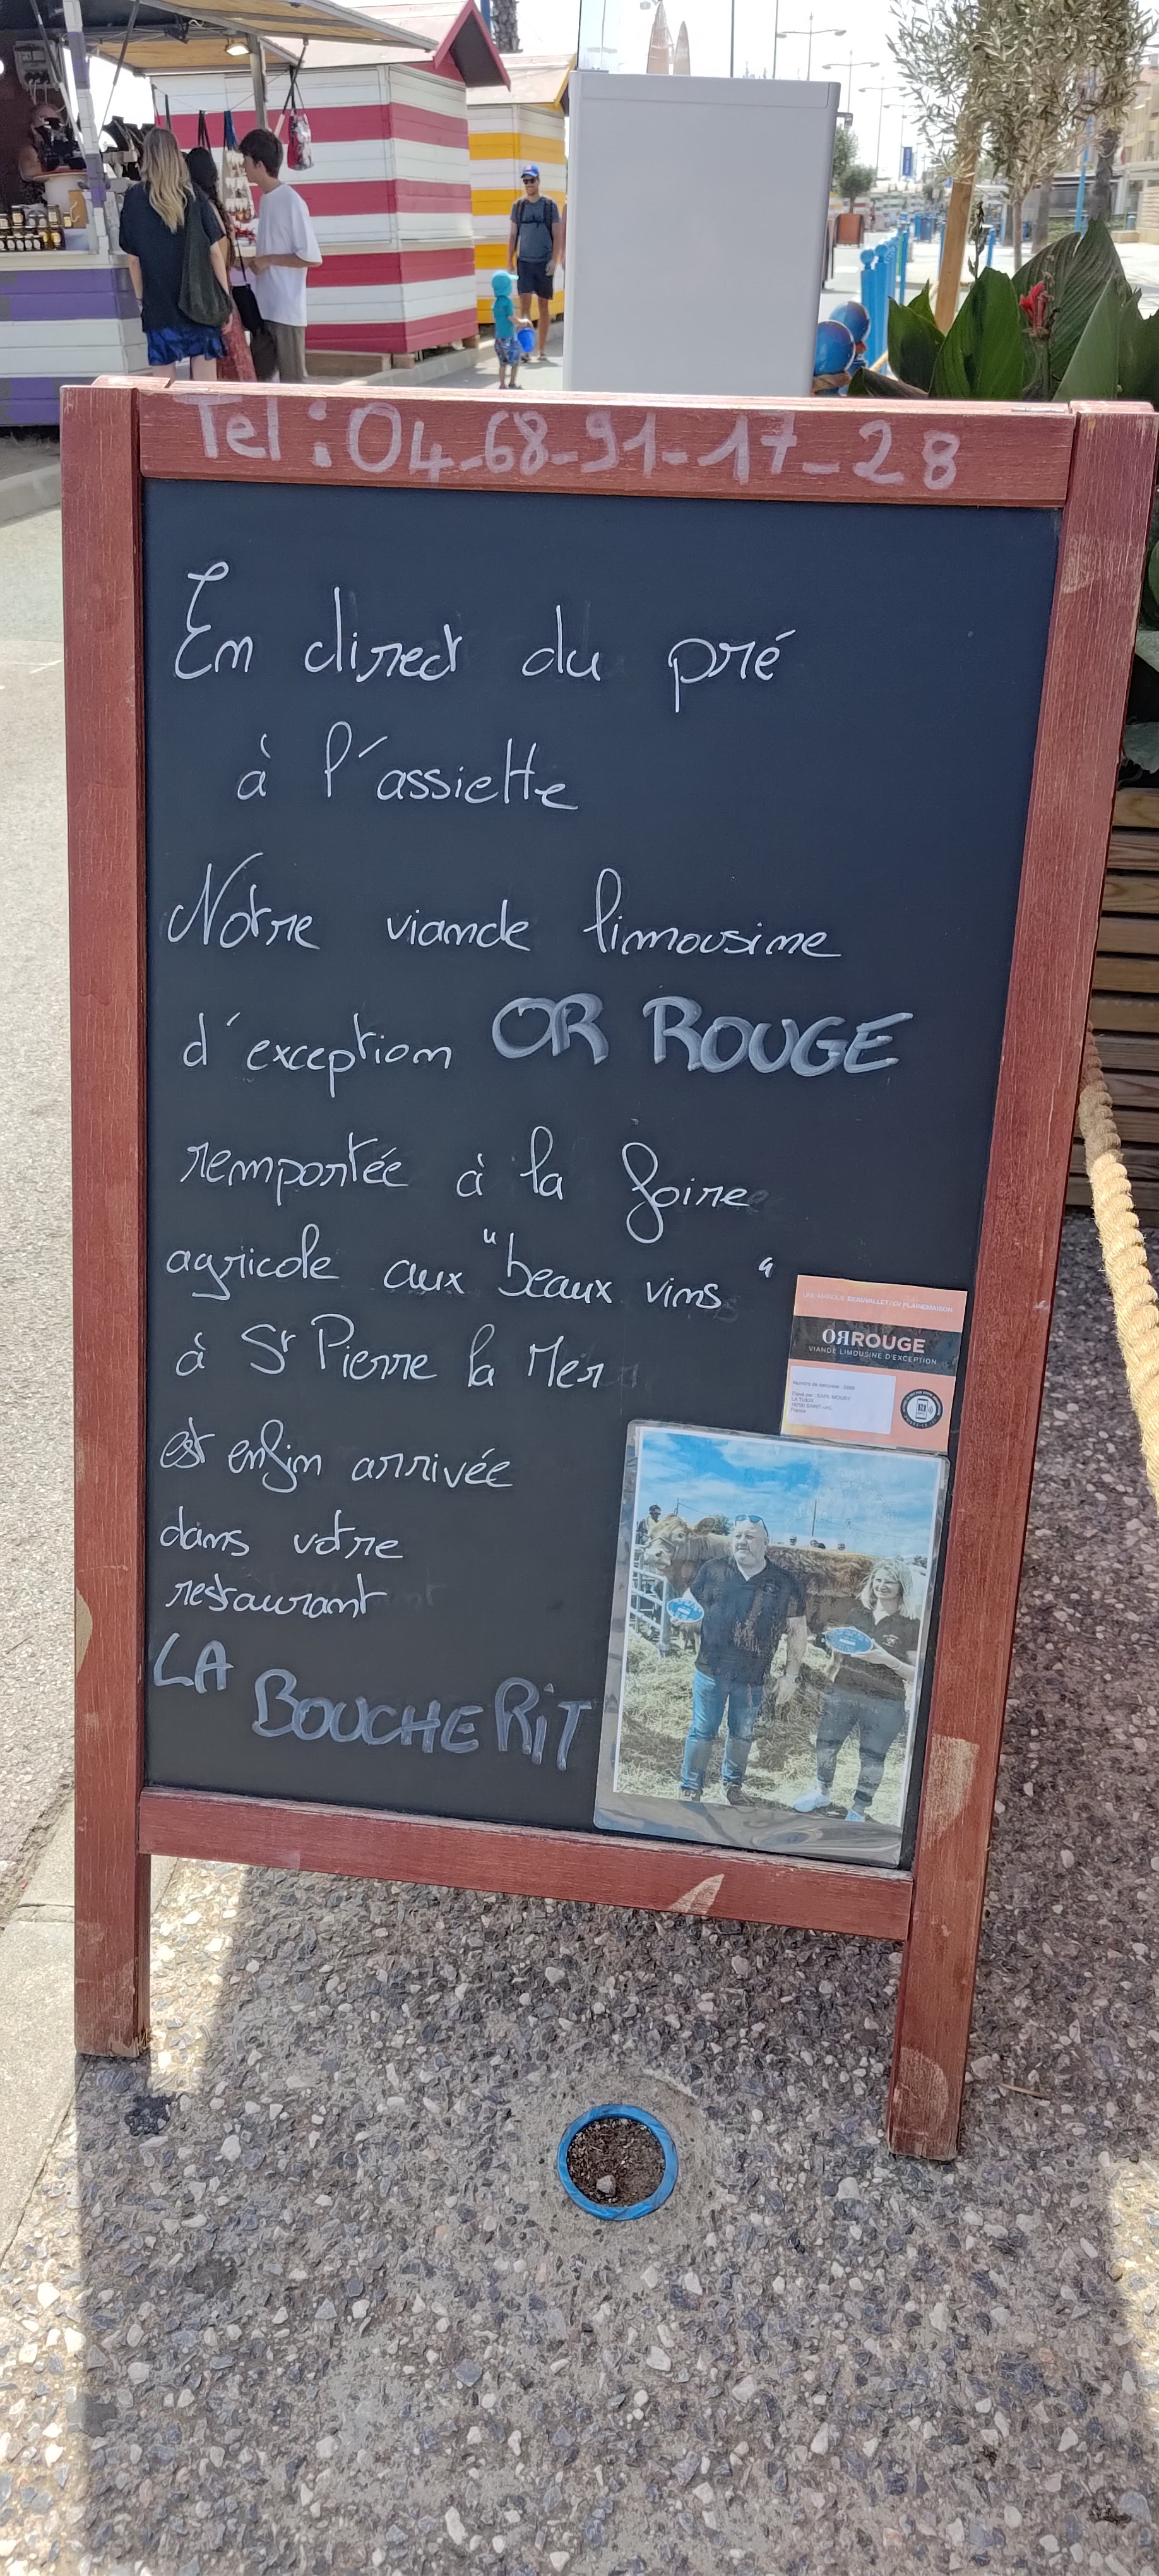 Tel : 04-68-91-17-28
En direct du pré
à l'assiette
Notre viande limousine
d'exception OR ROUGE
remportée à la foire
agricole aux "beaux vins"
à St Pierre la Mer
est enfin arrivée
dans votre
restaurant
LA
BOUCHERIT
UNE MARQUE BEAUVALLET / PLAINEMAISON
ORROUGE
VIANDE LIMOUSINE D'EXCEPTION
France